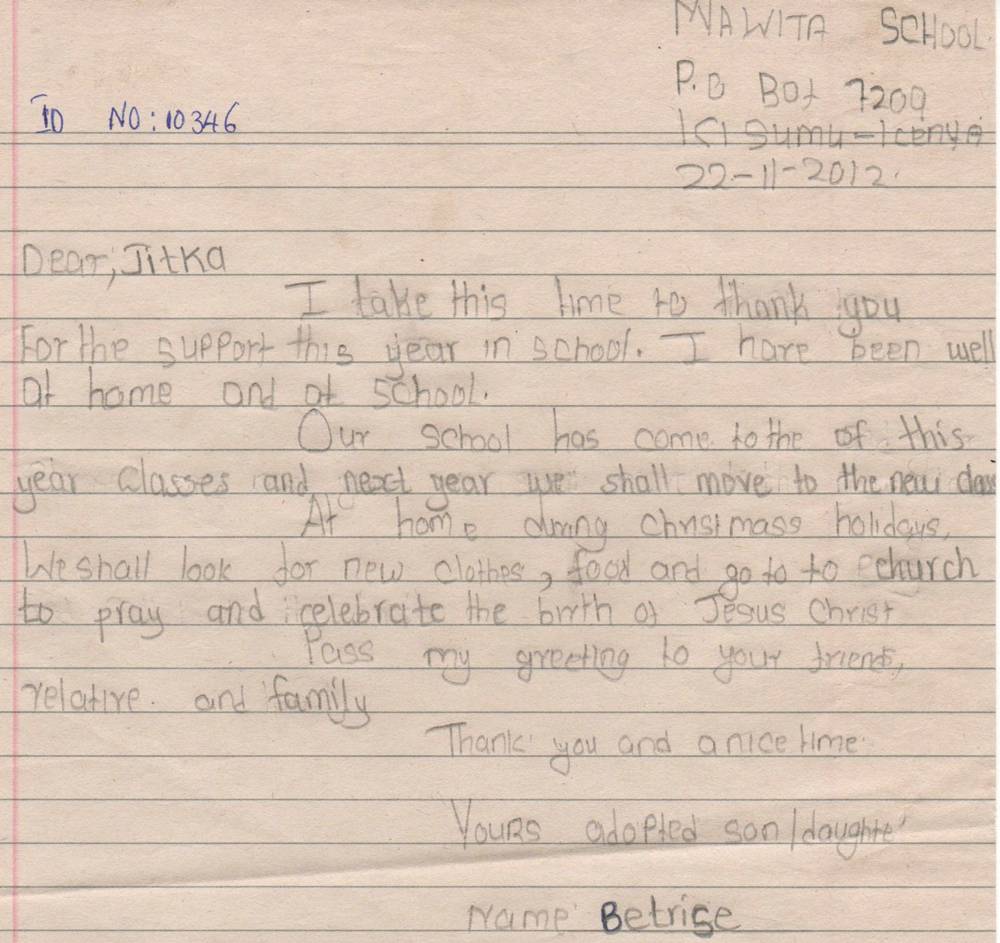 MAWITA SCHOOL
P.O Box 7209
ID NO: 10346
KISUMU-KENYA
22-11-2012.
Dear, Jitka
I take this time to thank you
For the support this year in school. I have been well
at home and at school.
Our school has come to the of this
year classes and next year we shall move to the new class
At home during Christmass holidays,
We shall look for new clothes, food and go to to church
to pray and celebrate the birth of Jesus Christ
Pass my greeting to your friends,
relative. and family
Thank you and a nice time
Yours adopted son/daughter
Name Betrise